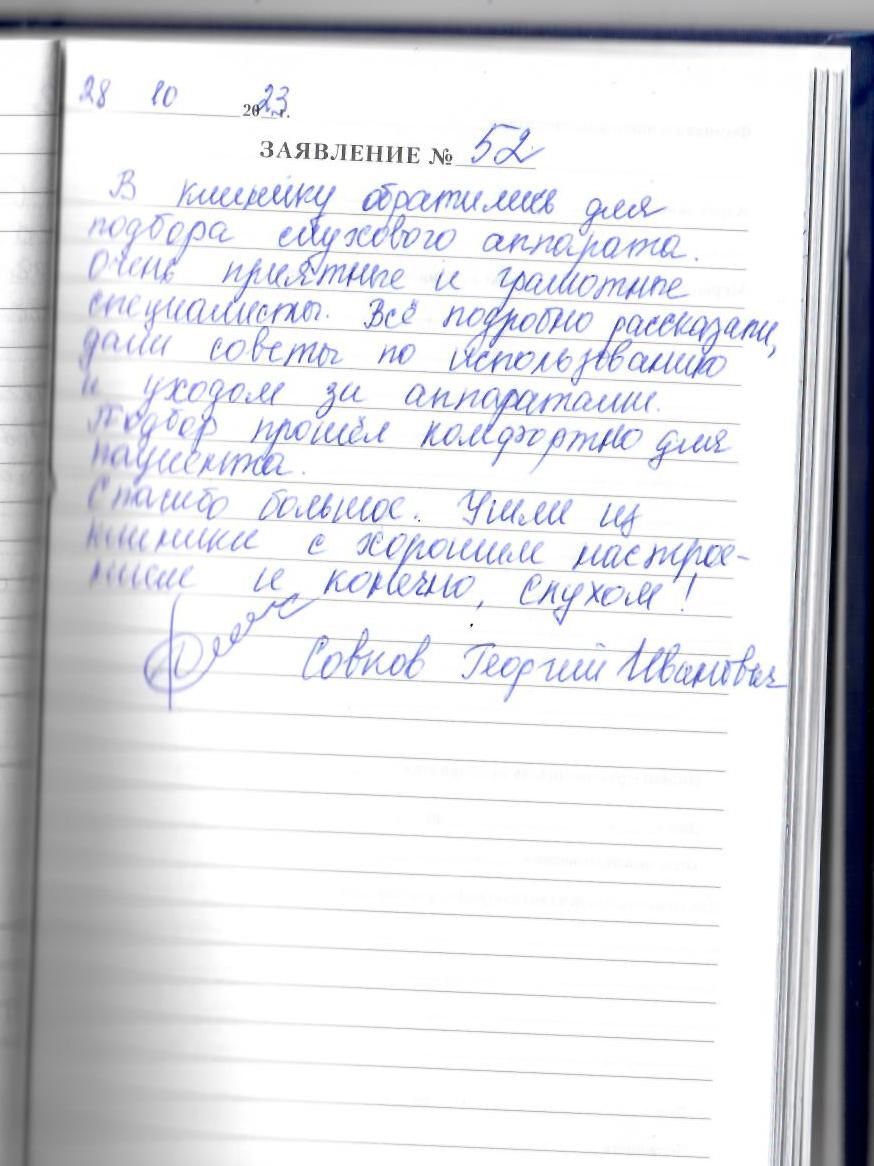 28 10 2023 г.
ЗАЯВЛЕНИЕ № 52
В клинику обратились для
подбора слухового аппарата.
Очень приятные и грамотные
специалисты. Всё подробно рассказали,
дали советы по использованию
и уходом за аппаратами.
Подбор прошёл комфортно для
пациента.
Спасибо большое. Ушли из
клиники с хорошим настрое-
нием и конечно, слухом!
Совков Георгий Иванович